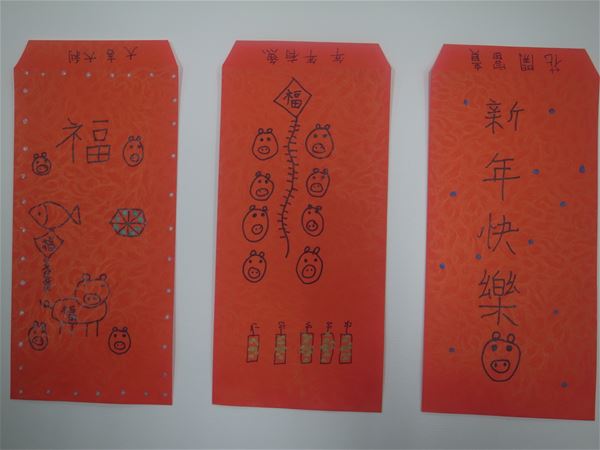 大吉大利
福
福
福
年年有魚
福
花開富貴
新年快樂